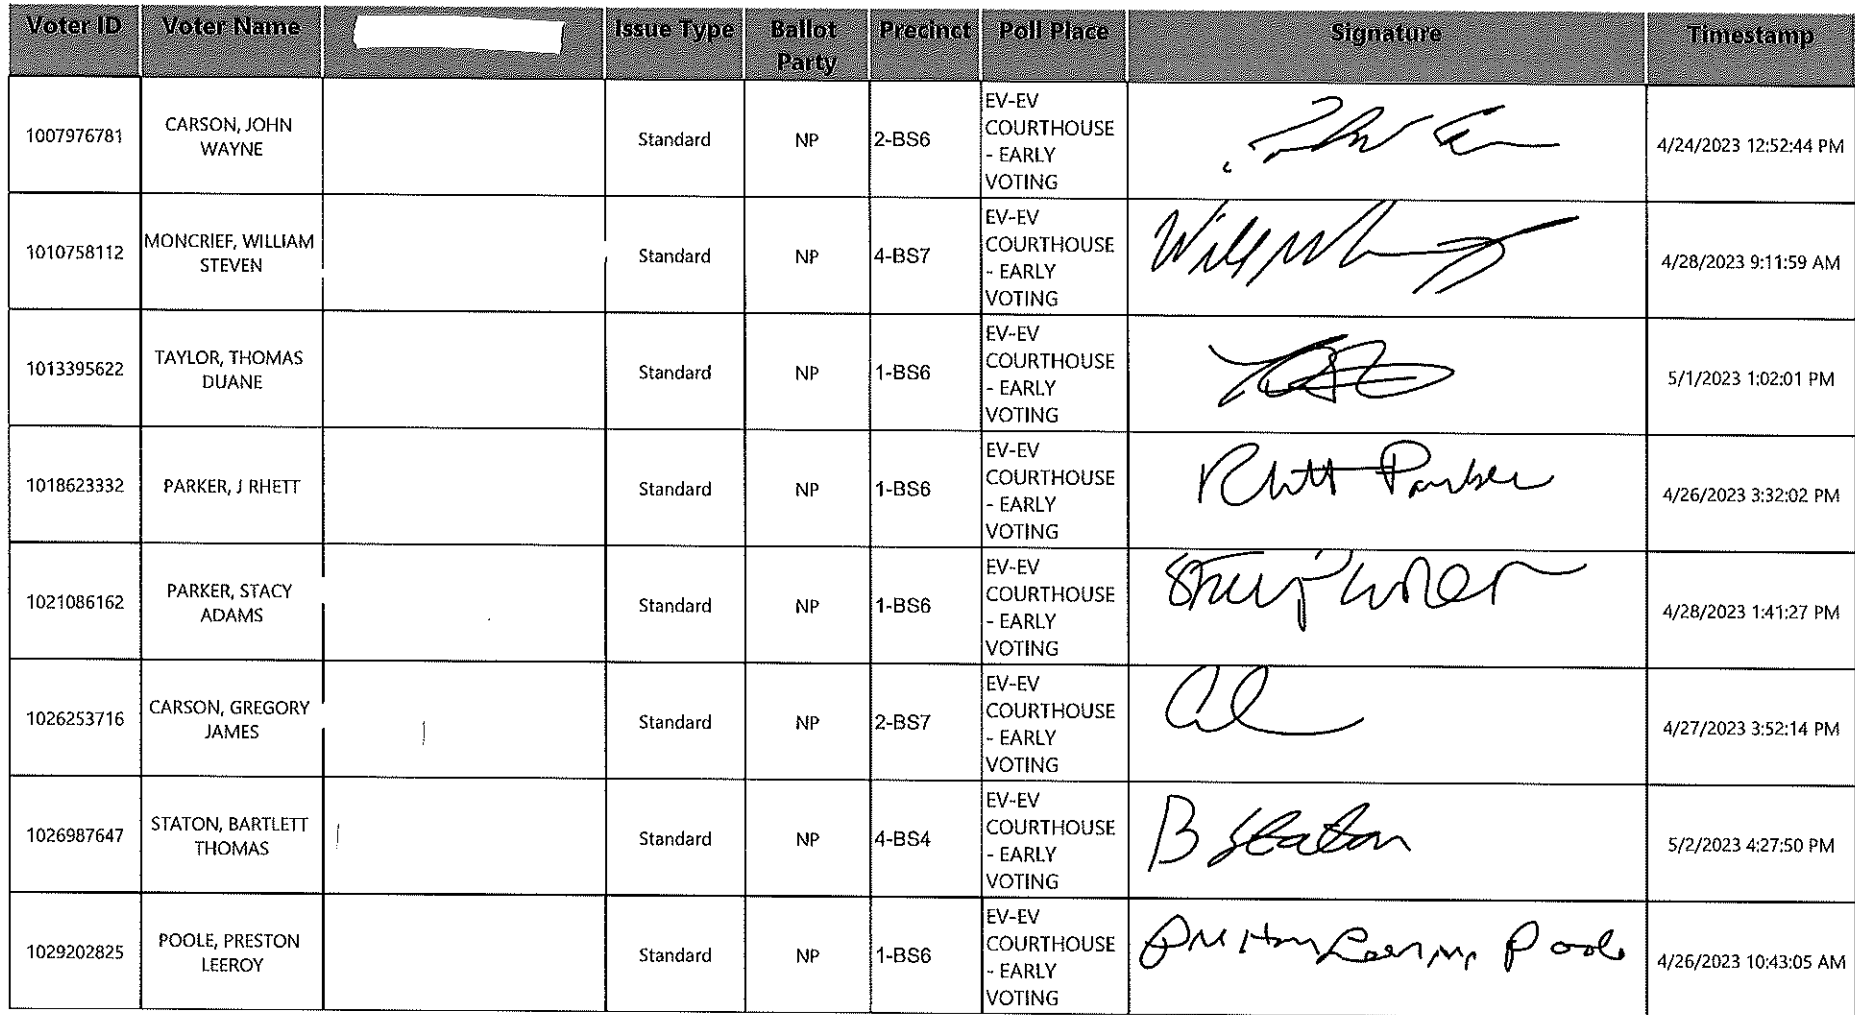 Voter ID Voter Name Issue Type Ballot Party Precinct Poll Place Signature Timestamp
1007976781 CARSON, JOHN WAYNE Standard NP 2-BS6 EV-EV COURTHOUSE - EARLY VOTING 4/24/2023 12:52:44 PM
1010758112 MONCRIEF, WILLIAM STEVEN Standard NP 4-BS7 EV-EV COURTHOUSE - EARLY VOTING 4/28/2023 9:11:59 AM
1013395622 TAYLOR, THOMAS DUANE Standard NP 1-BS6 EV-EV COURTHOUSE - EARLY VOTING 5/1/2023 1:02:01 PM
1018623332 PARKER, J RHETT Standard NP 1-BS6 EV-EV COURTHOUSE - EARLY VOTING Rhett Parker 4/26/2023 3:32:02 PM
1021086162 PARKER, STACY ADAMS Standard NP 1-BS6 EV-EV COURTHOUSE - EARLY VOTING Stacy Parker 4/28/2023 1:41:27 PM
1026253716 CARSON, GREGORY JAMES Standard NP 2-BS7 EV-EV COURTHOUSE - EARLY VOTING 4/27/2023 3:52:14 PM
1026987647 STATON, BARTLETT THOMAS Standard NP 4-BS4 EV-EV COURTHOUSE - EARLY VOTING B Staton 5/2/2023 4:27:50 PM
1029202825 POOLE, PRESTON LEEROY Standard NP 1-BS6 EV-EV COURTHOUSE - EARLY VOTING Poole 4/26/2023 10:43:05 AM